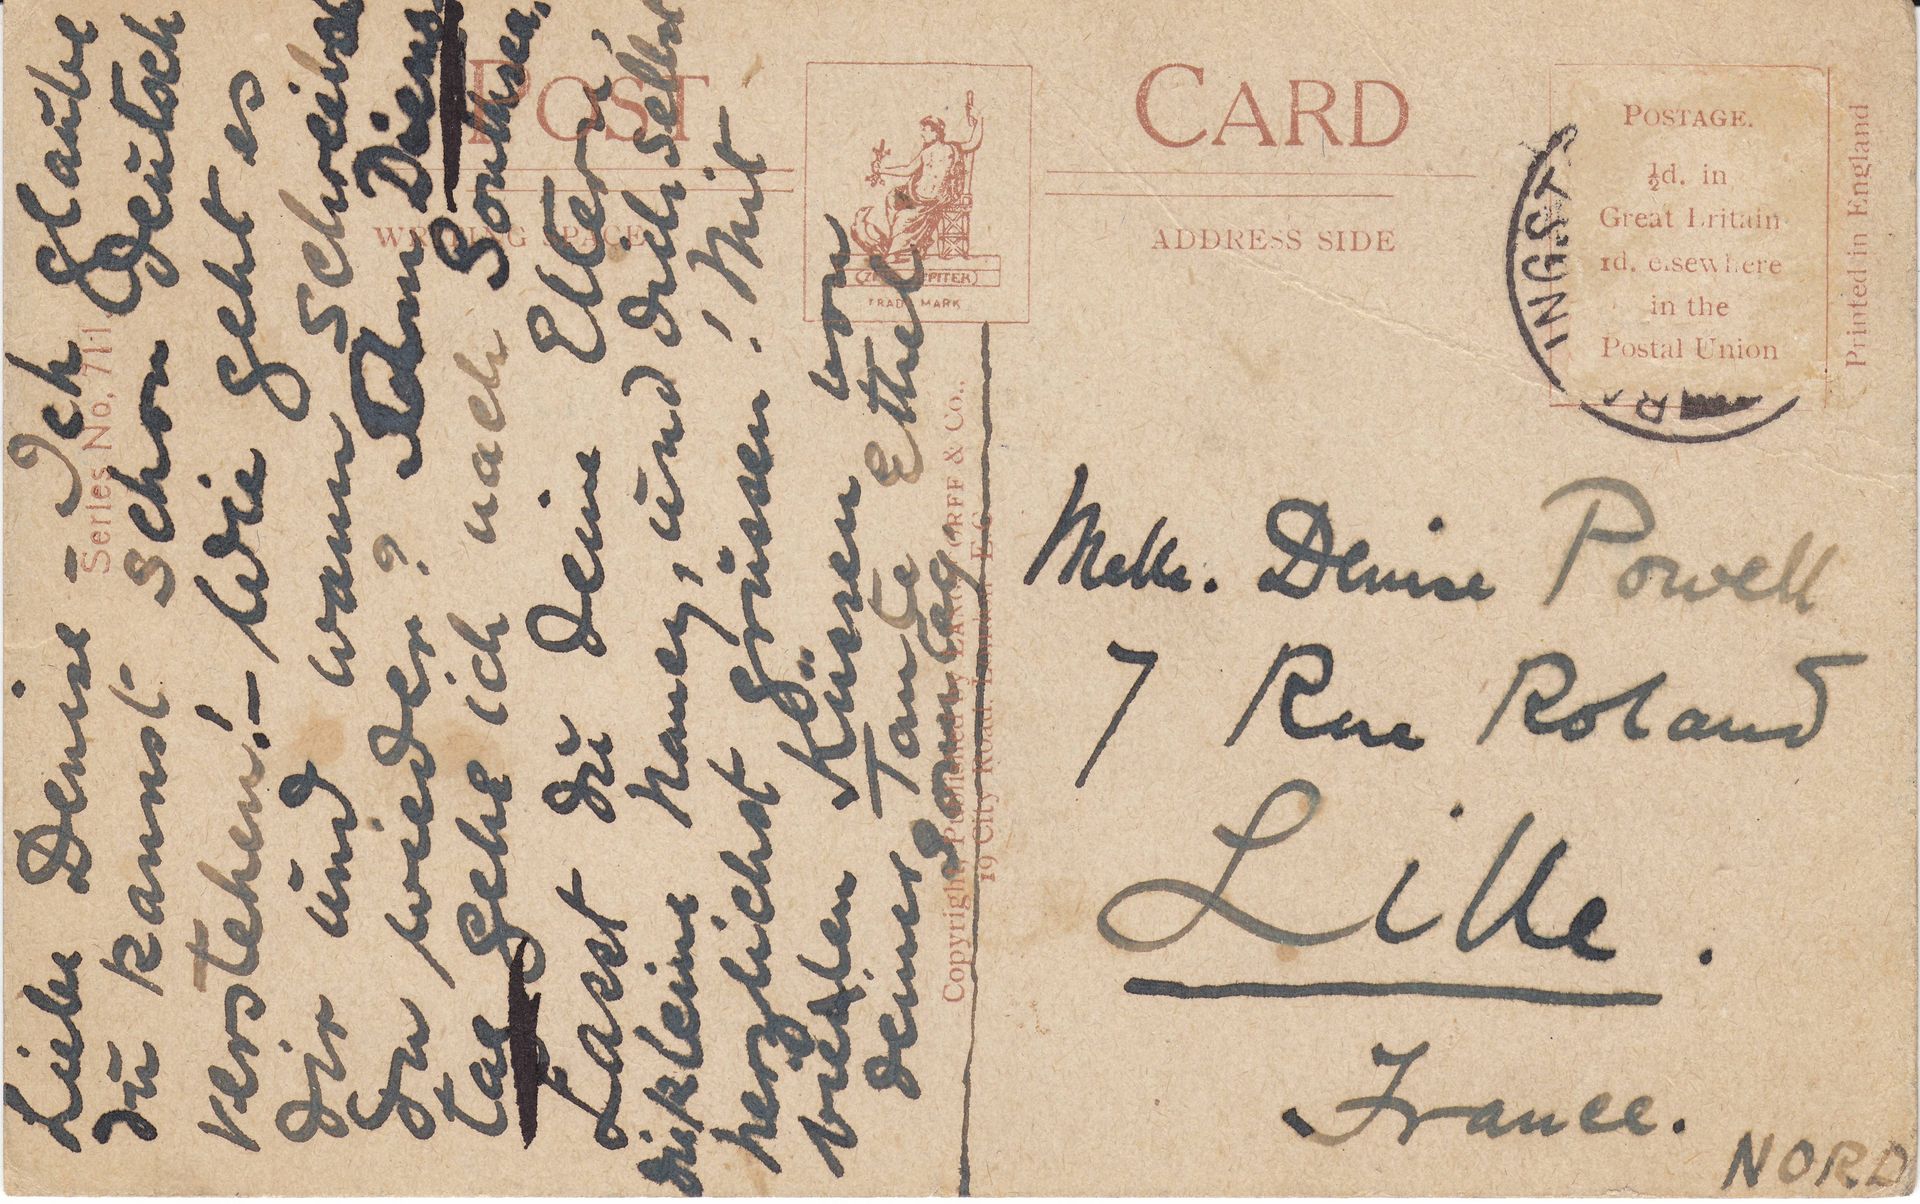 POST CARD
WRITING SPACE
ADDRESS SIDE
TRADE MARK
POSTAGE.
½d. in
Great Britain
1d. elsewhere
in the
Postal Union
Printed in England
INGST
Series No. 711
Copyright, Published by
19 City Road, London E.C.
Liebe Denise – Ich glaube
dü kannst schon Deütsch
verstehen! – Wie geht es
dir ünd wann schreibst
Dü wieder? Am Diens
tag gehe ich nach
Lasst dü deine Eltern,
die kleine Nancy, ünd dich selbst
herzlichst grüssen! Mit
vielen Küssen von
deiner Tante Ethel
Sonntag
Melle. Denise Powell
7 Rue Roland
Lille.
France.
NORD